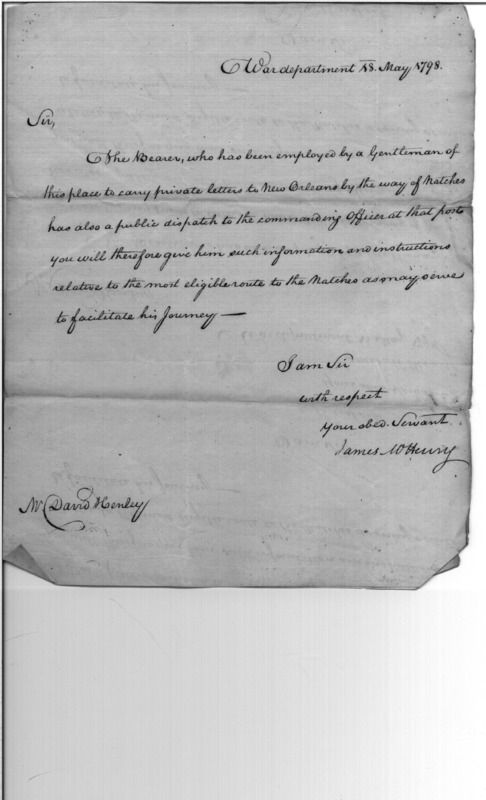 War department 18. May 1798.
Sir,
The Bearer, who has been employed by a Gentleman of
this place to carry private letters to New Orleans by the way of Natches
has also a public dispatch to the commanding Officer at that post
you will therefore give him such information and instructions
relative to the most eligible route to the Natches as may serve
to facilitate his Journey —
I am Sir
with respect
your obed. Servant
James McHenry
Mr David Henley